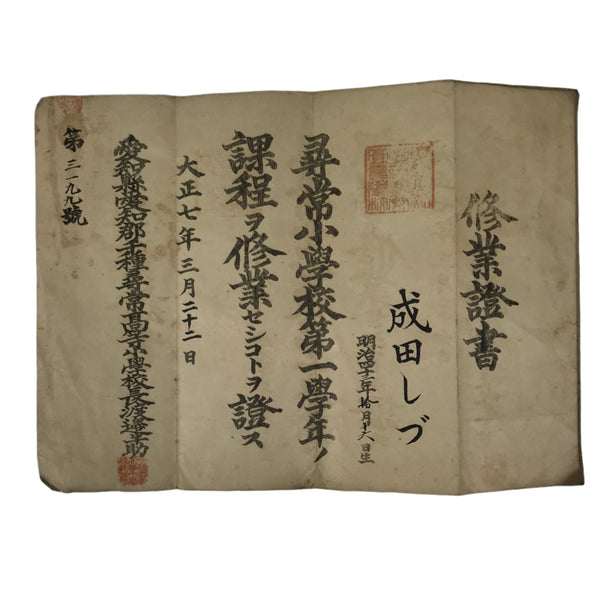 修業證書
成田しづ
明治四十三年拾月十六日生
尋常小學校第一學年ノ
課程ヲ修業セシコトヲ證ス
大正七年三月二十二日
愛知縣愛知郡千種尋常高等小學校長渡邊
第三一九九號